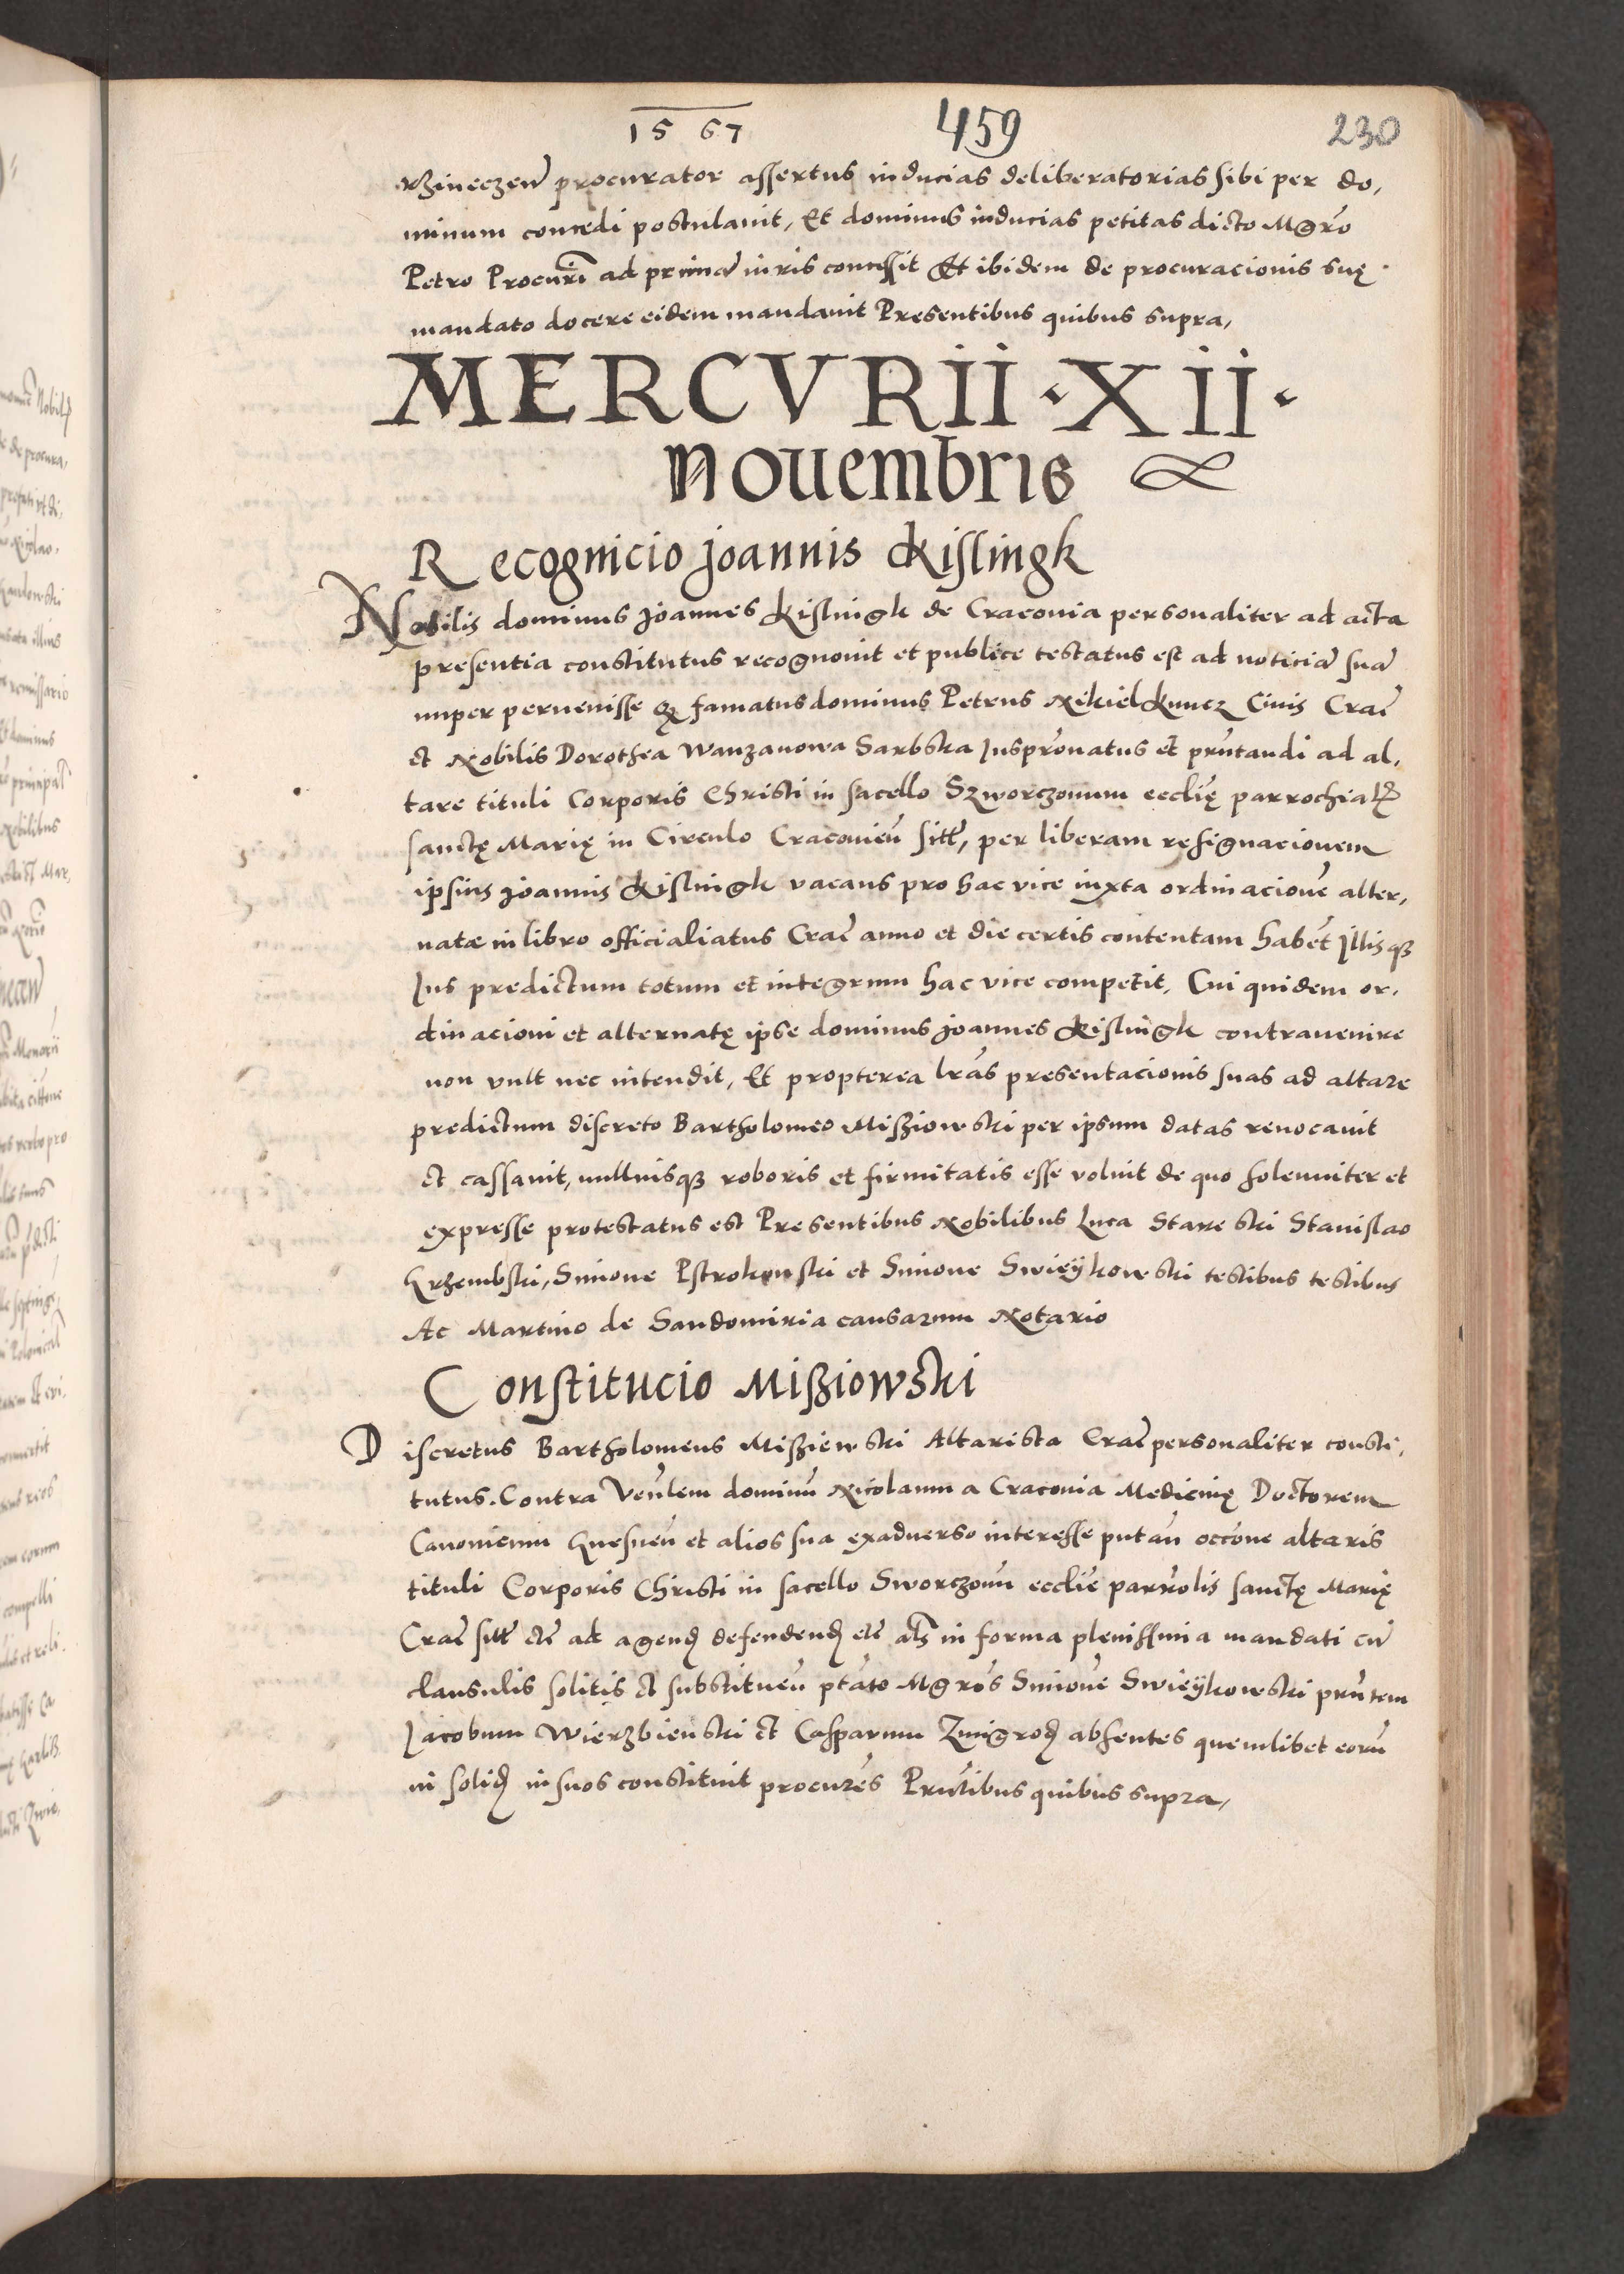 1567 459 230
rzineczen̄ procurator assertus inducias deliberatorias sibi per do,
minum concedi postulauit, Et dominus inducias petitas dicto Mgr̄o
Petro Procur̄i ad primā iuris concessit Et ibidem de procuracionis suę
mandato docere eidem mandauit Presentibus quibus supra,
MERCVRII · XII ·
Nouembris
Recognicio Joannis Kislingk
Nobilis dominus Joannes Kislingk de Cracouia personaliter ad acta
presentia constitutus recognouit et publice testatus est ad noticiā suā
nuper peruenisse famatus dominus Petrus Nikiel Kuncz Ciuis Crac̄
et Nobilis Dorothea Wanzanowa Sarbska Juspr̄onatus et pr̄ntandi ad al,
tare tituli Corporis Christi in sacello Szworczonum eccl̄ię parrochial
sanctę Marię in Circulo Cracouien̄ sitt̄, per liberam resignacionem
ipsius Joannis Kislingk vacans pro hac vice iuxta ordinacionē alter,
natæ in libro officialiatus Crac̄ anno et die certis contentam habēt Illisq3
Jus predictum totum et integrum hac vice competit, Cui quidem or,
dinacioni et alternatę ipse dominus Joannes Kislingk contrauenire
non vult nec intendit, Et propterea l̄ras presentacionis suas ad altare
predictum discreto Bartholomeo Misziowski per ipsum datas reuocauit
et cassauit, nulliusq3 roboris et firmitatis esse voluit de quo solenniter et
expresse protestatus est Presentibus Nobilibus Luca Starski Stanislao
Krzembski, Simone Pstrokonski et Simone Swieykowski testibus testibus
Ac Martino de Sandomiria causarum Notario
Constitucio Misziowski
Discretus Bartholomeus Misziewski Altarista Crac̄ personaliter consti,
tutus. Contra Ven̄lem dominū Nicolaum a Cracouia Medicinę Doctorem
Canonicum Gnesnen̄ et alios sua exaduerso interesse putan̄ occ̄one altaris
tituli Corporis Christi in sacello Sworczonū eccl̄ie parr̄olis sanctę Marię
Crac̄ sitt̄ etc̄ ad agend defendend etc̄ al̄s in forma plenissima mandati cū
clausulis solitis et substituen̄ ptāto Mgr̄os Simonē Swieykowski pr̄ntem
Jacobum Wierzbienski et Casparum Zmigrod absentes quemlibet eorū
in solid in suos constituit procur̄es Pr̄ntibus quibus supra,